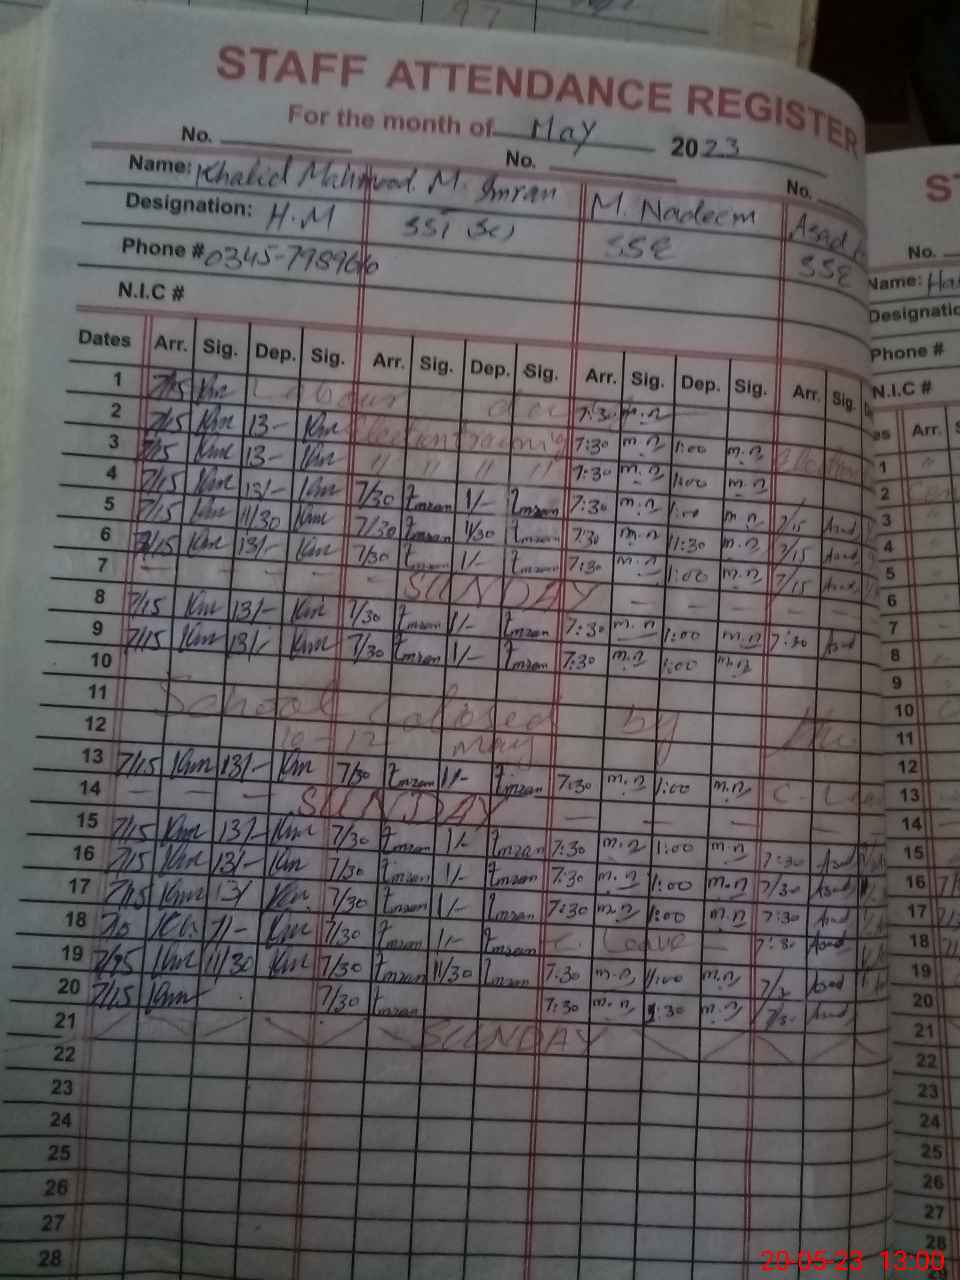 STAFF ATTENDANCE REGISTER
For the month of May 2023
No. No. No.
Name: Khalid Mahmood M. Imran M. Nadeem Asad
Designation: H.M SST (Sc) SSE SSE
Phone # 0345-7989666
N.I.C #
Dates Arr. Sig. Dep. Sig. Arr. Sig. Dep. Sig. Arr. Sig. Dep. Sig. Arr. Sig.
1 7/15 Km Labour day 7:30 m.n
2 7/15 Km 13- Km Election training 7:30 m.n 1:00 m.n
3 7/15 Km 13- Km " " " " 7:30 m.n 1:00 m.n
4 7/15 Km 13/- Km 7/30 Imran 1/- Imran 7:30 m.n 1:00 m.n 7/15 Asad
5 7/15 Km 11/30 Km 7/30 Imran 11/30 Imran 7:30 m.n 11:30 m.n 7/15 Asad
6 7/15 Km 13/- Km 7/30 Imran 1/- Imran 7:30 m.n 1:00 m.n 7/15 Asad
7 SUNDAY
8 7/15 Km 13/- Km 7/30 Imran 1/- Imran 7:30 m.n 1:00 m.n 7:30 Asad
9 7/15 Km 13/- Km 7/30 Imran 1/- Imran 7:30 m.n 1:00 m.n
10
11 School closed by the
12 10-12 May
13 7/15 Km 13/- Km 7/30 Imran 1/- Imran 7:30 m.n 1:00 m.n C-
14 SUNDAY
15 7/15 Km 13/- Km 7/30 Imran 1/- Imran 7:30 m.n 1:00 m.n 7:30 Asad
16 7/15 Km 13/- Km 7/30 Imran 1/- Imran 7:30 m.n 1:00 m.n 7/30 Asad
17 7/15 Km 13/ Km 7/30 Imran 1/- Imran 7:30 m.n 1:00 m.n 7:30 Asad
18 Km 7/30 Imran 1/- Imran C. Leave 7:30 Asad
19 Km 11/30 Km 7/30 Imran 11/30 Imran 7:30 m.n 11:00 m.n Asad
20 7/15 Km 7/30 Imran 7:30 m.n m.n Asad
21 SUNDAY
22
23
24
25
26
27
28
No.
Name:
Phone #
N.I.C #
Arr.
1
2
3
4
5
6
7
8
9
10
11
12
13
14
15
16
17
18
19
20
21
22
23
24
25
26
27
28
20-05-23 13:00